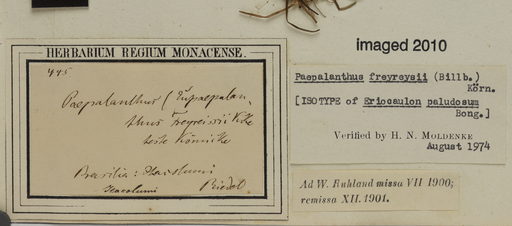 HERBARIUM REGIUM MONACENSE.
445
Paepalanthus (Eupaepalan-
thus Freyreissii Kcke
teste Körnicke
Brasilia: Itacolumi
Itacolumi Riedel
imaged 2010
Paepalanthus freyreysii (Billb.)
Körn.
[ISOTYPE of Eriocaulon paludosum
Bong.]
Verified by H. N. MOLDENKE
August 1974
Ad W. Ruhland missa VII 1900;
remissa XII. 1901.